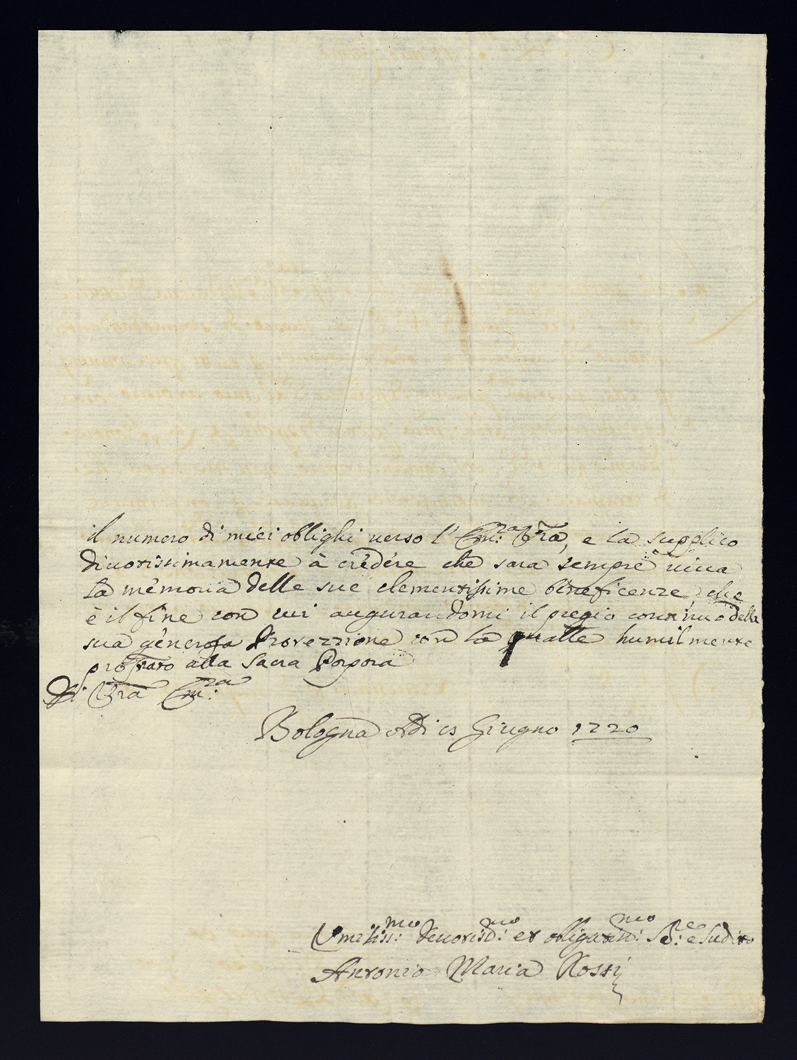 il numero di miei oblighi verso l' Em:za Vra, e la supplico
divotissimamente à credere che sara sempre viva
la memoria delle sue clementissime beneficenze che
è il fine con cui augurandomi il pregio continuo della
sua generosa Protezzione con la qualle humilmente
prostrato alla Sacra Porpora
Di Vra Em:za
Bologna Adi Giugno 1720
Umiliss:mo devotis:mo et obligatis:mo Se:re e Sudito
Antonio Maria Rossi